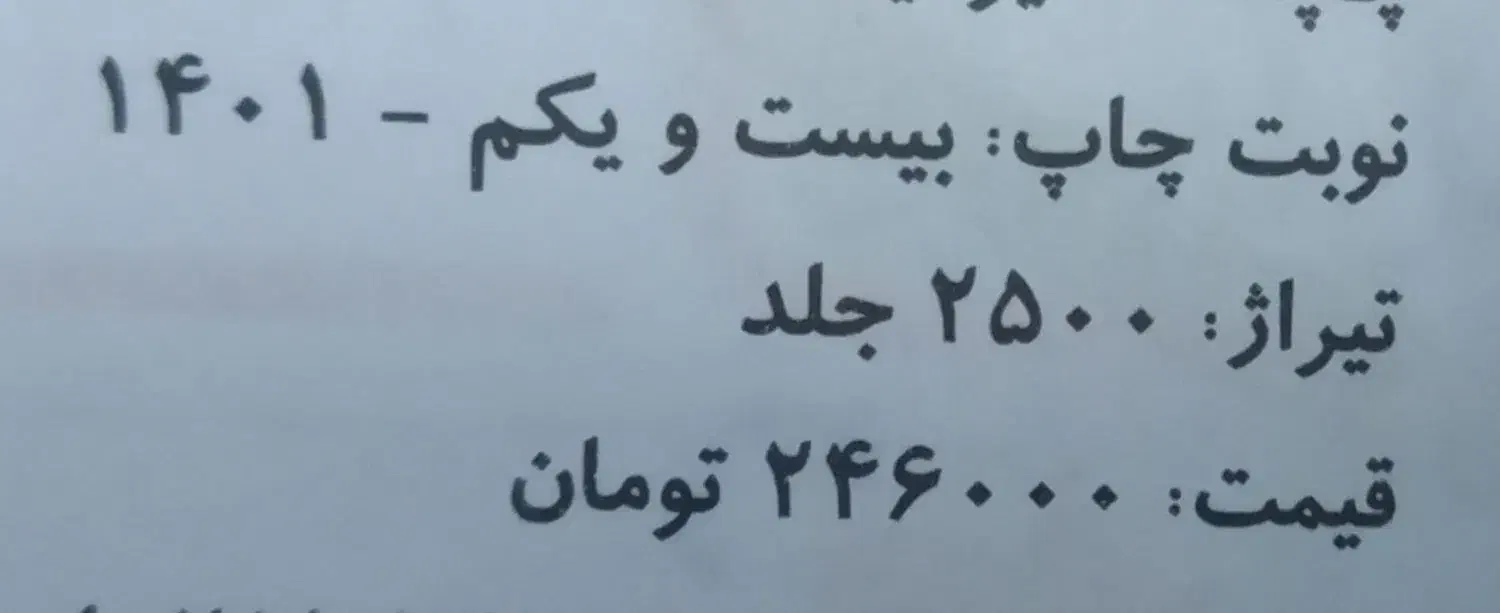 نوبت چاپ: بیست و یکم - ۱۴۰۱
تیراژ: ۲۵۰۰ جلد
قیمت: ۲۴۶۰۰۰ تومان